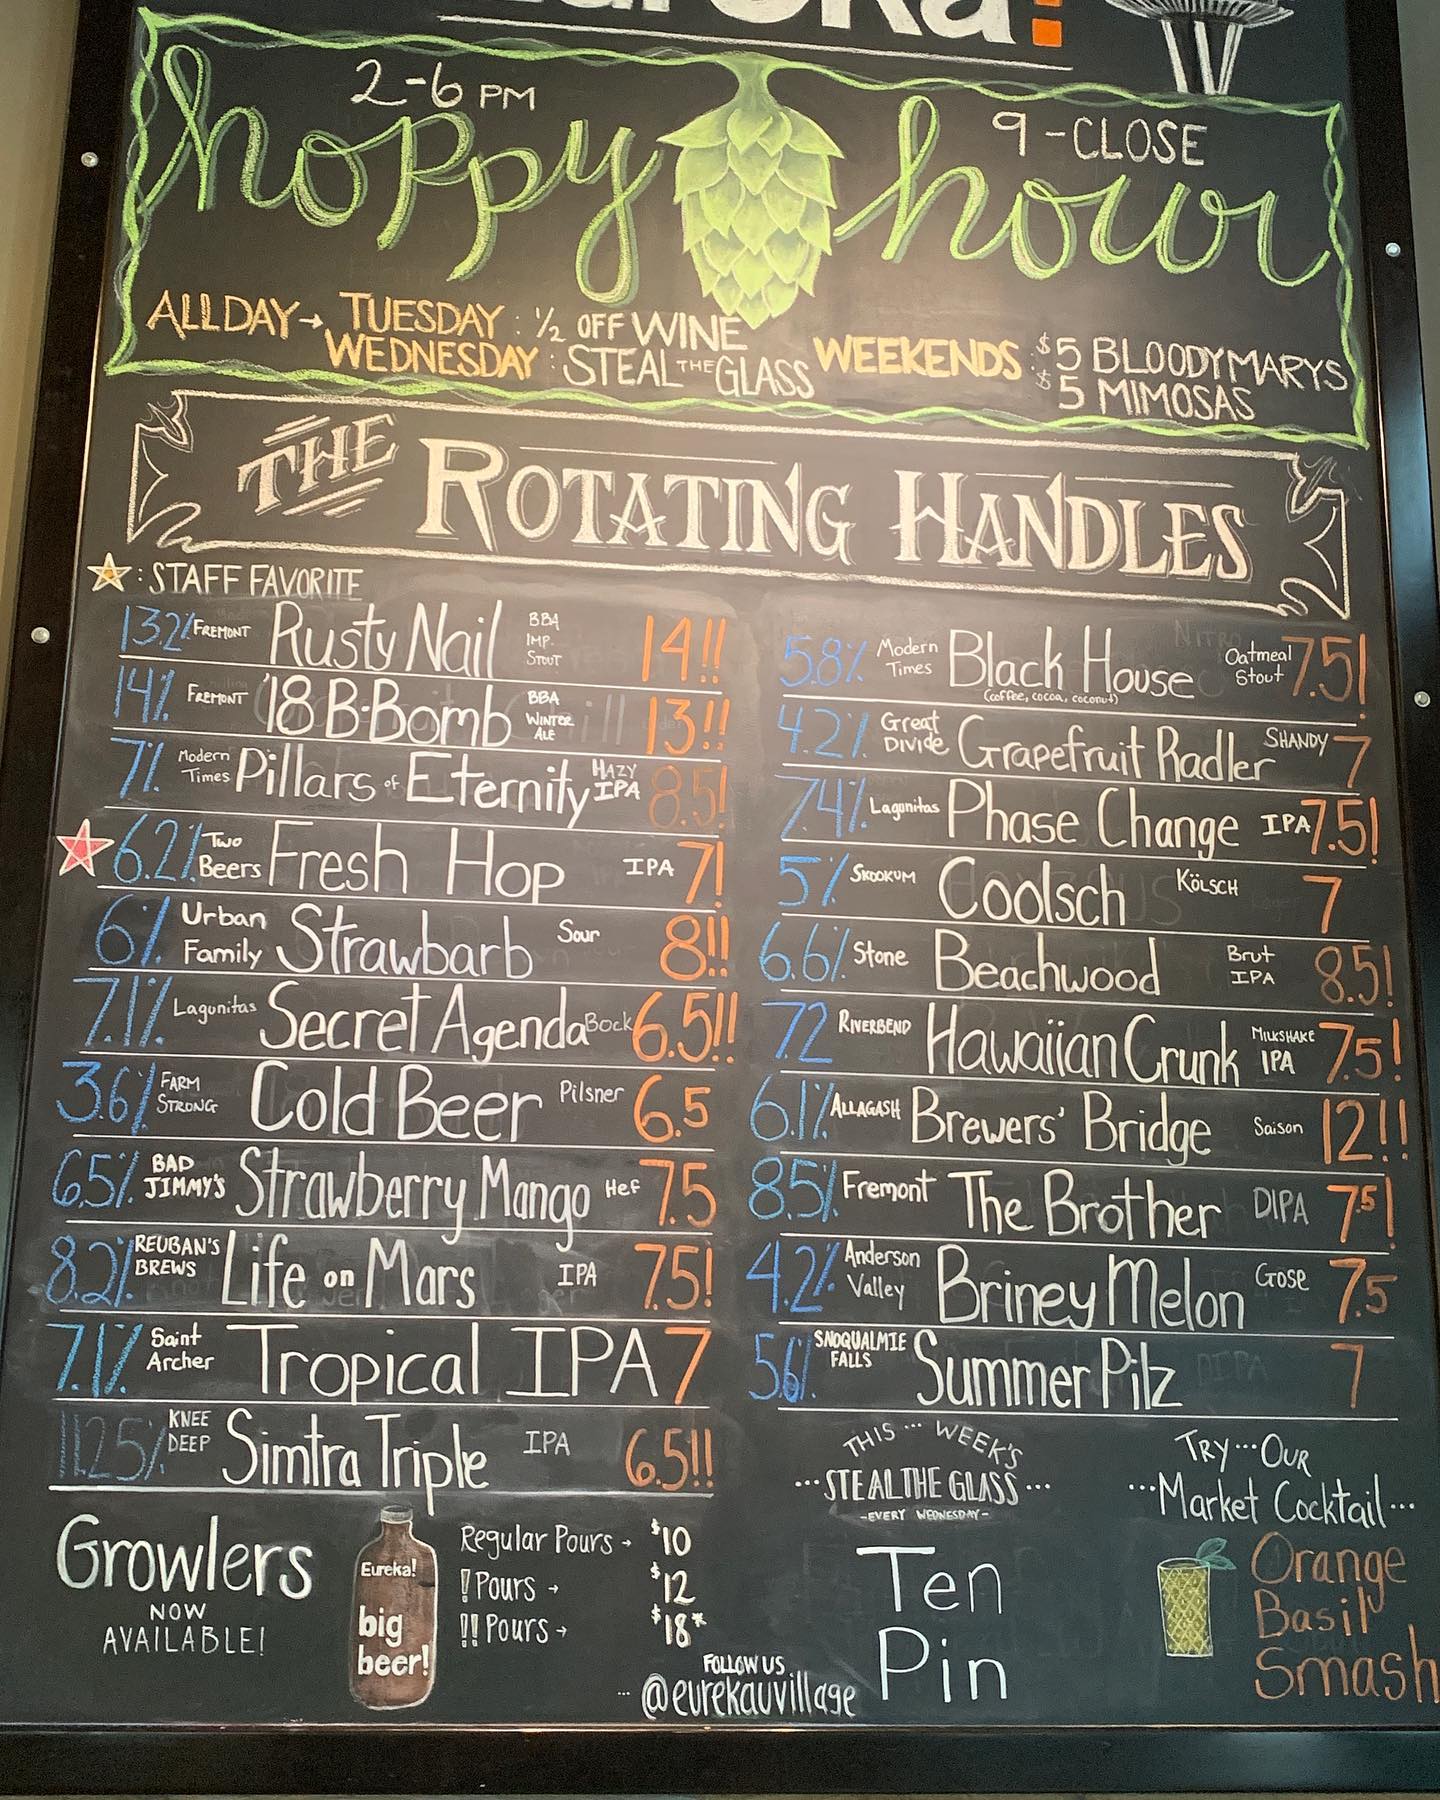 eureka!
2-6 PM
9-CLOSE
hoppy hour
ALL DAY → TUESDAY : ½ OFF WINE
WEDNESDAY : STEAL THE GLASS
WEEKENDS : $5 BLOODY MARYS
$5 MIMOSAS
THE ROTATING HANDLES
: STAFF FAVORITE
13.2% FREMONT Rusty Nail BBA IMP. STOUT 14!!
14% FREMONT '18 B-Bomb BBA WINTER ALE 13!!
7% Modern Times Pillars of Eternity HAZY IPA 8.5!
6.2% Two Beers Fresh Hop IPA 7!
6% Urban Family Strawbarb Sour 8!!
7.1% Lagunitas Secret Agenda Bock 6.5!!
3.6% FARM STRONG Cold Beer Pilsner 6.5
6.5% BAD JIMMY'S Strawberry Mango Hef 7.5
8.2% REUBAN'S BREWS Life on Mars IPA 7.5!
7.1% Saint Archer Tropical IPA 7
11.25% KNEE DEEP Simtra Triple IPA 6.5!!
5.8% Modern Times Black House Oatmeal Stout 7.5!
(coffee, cocoa, coconut)
4.2% Great DIVIDE Grapefruit Radler SHANDY 7
7.4% Lagunitas Phase Change IPA 7.5!
5% SKOOKUM Coolsch KÖLSCH 7
6.6% Stone Beachwood Brut IPA 8.5!
7.2 RIVERBEND Hawaiian Crunk MILKSHAKE IPA 7.5!
6.1% ALLAGASH Brewers' Bridge Saison 12!!
8.5% Fremont The Brother DIPA 7.5!
4.2% Anderson Valley Briney Melon Gose 7.5
5.6% SNOQUALMIE FALLS Summer Pilz 7
Growlers
NOW
AVAILABLE!
Eureka!
big
beer!
Regular Pours → $10
! Pours → $12
!! Pours → $18*
FOLLOW US
... @eurekauvillage
THIS ... WEEK'S
... STEAL THE GLASS ...
- EVERY WEDNESDAY -
Ten
Pin
TRY ... OUR
... Market Cocktail ...
Orange
Basil
Smash